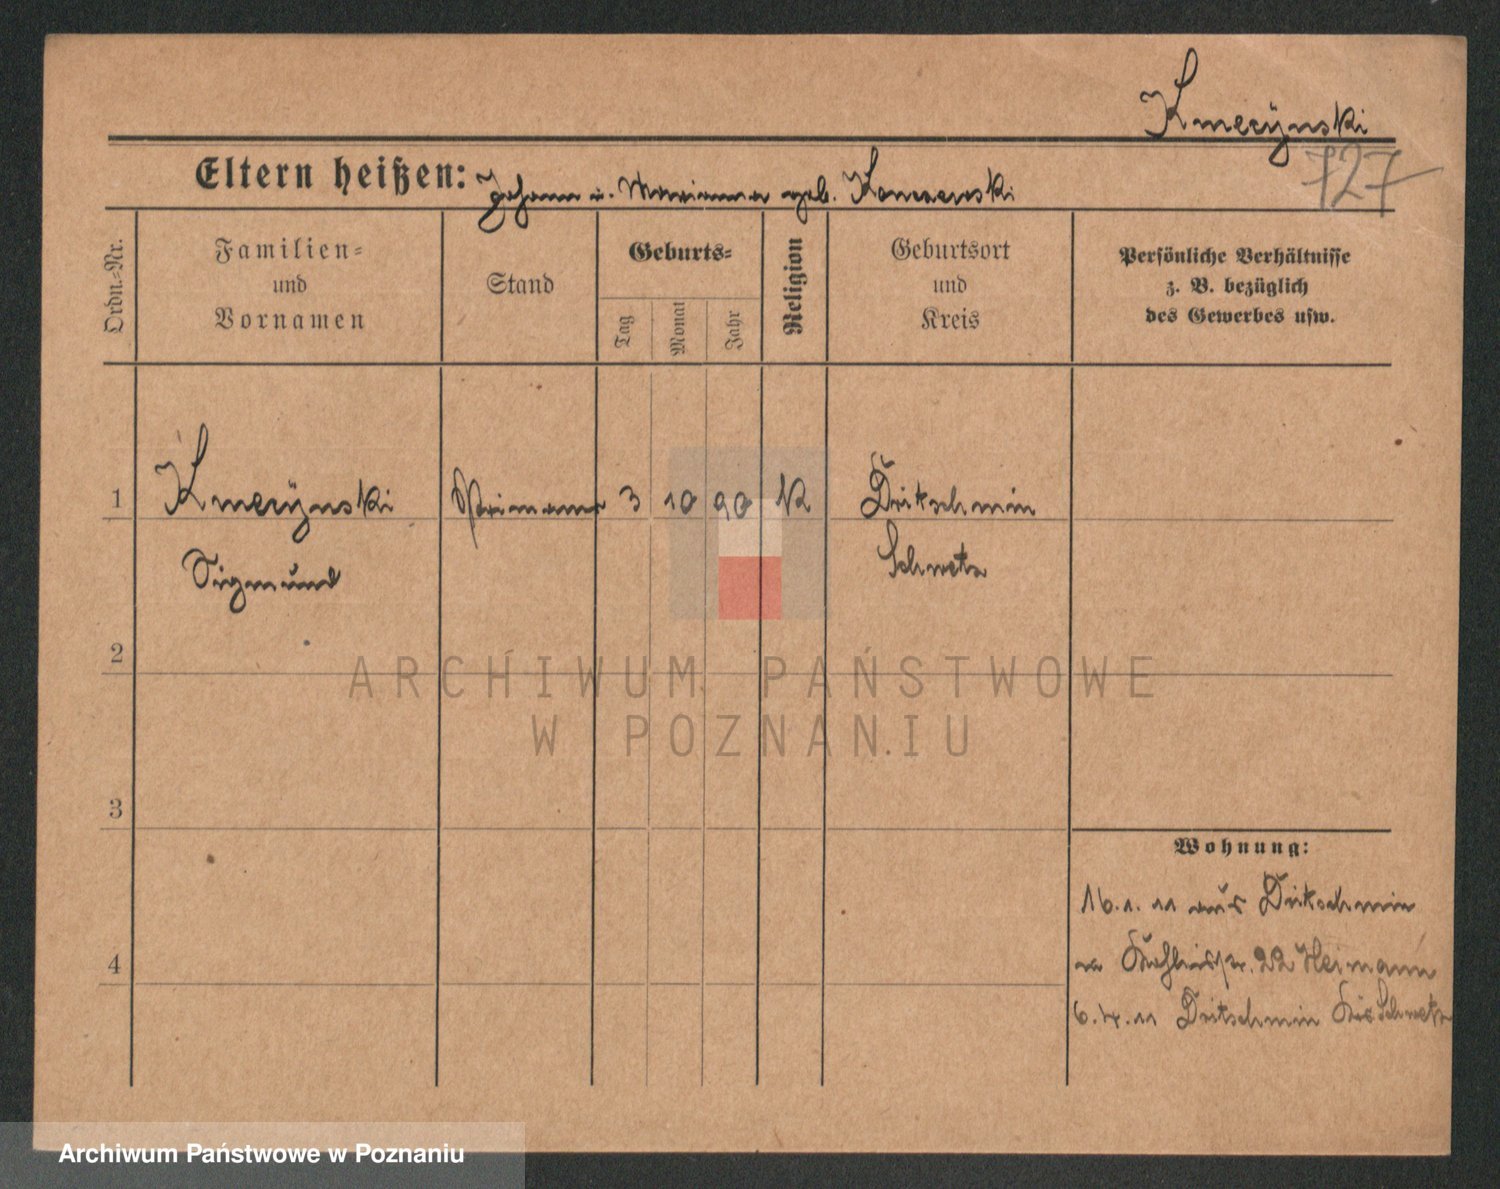 Kmecÿnski
727
Eltern heißen: Johann u. Marianna geb.
Ordn.-Nr.
Familien-
und
Vornamen
Stand
Geburts-
Tag
Monat
Jahr
Religion
Geburtsort
und
Kreis
Persönliche Verhältnisse
z. B. bezüglich
des Gewerbes usw.
1 Kmecÿnski Primaner 3 10 90 K Dritschmin
Sigmund Schwetz
2
3
4
Wohnung:
16.1.11 aus Dritschmin
22 Heimann
6.4.11 Dritschmin Krs Schwetz
ARCHIWUM PAŃSTWOWE
W POZNANIU
Archiwum Państwowe w Poznaniu